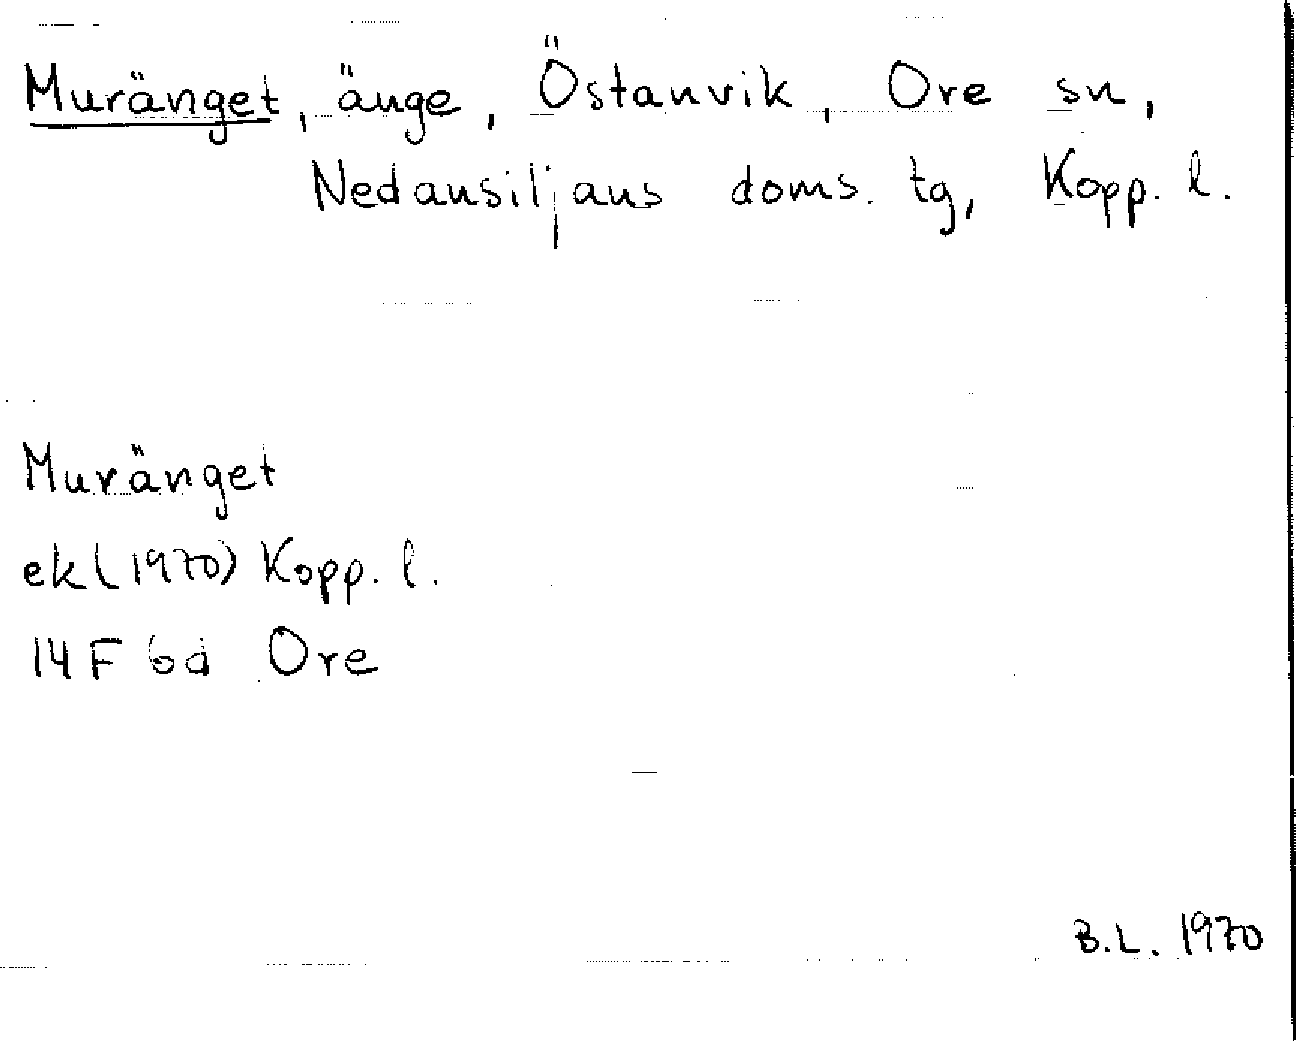 Muränget, änge, Östanvik, Ore sn,
Nedansiljans doms. tg, Kopp. l.
Muränget
ek (1970) Kopp. l.
14 F 6d Ore
B.L. 1970